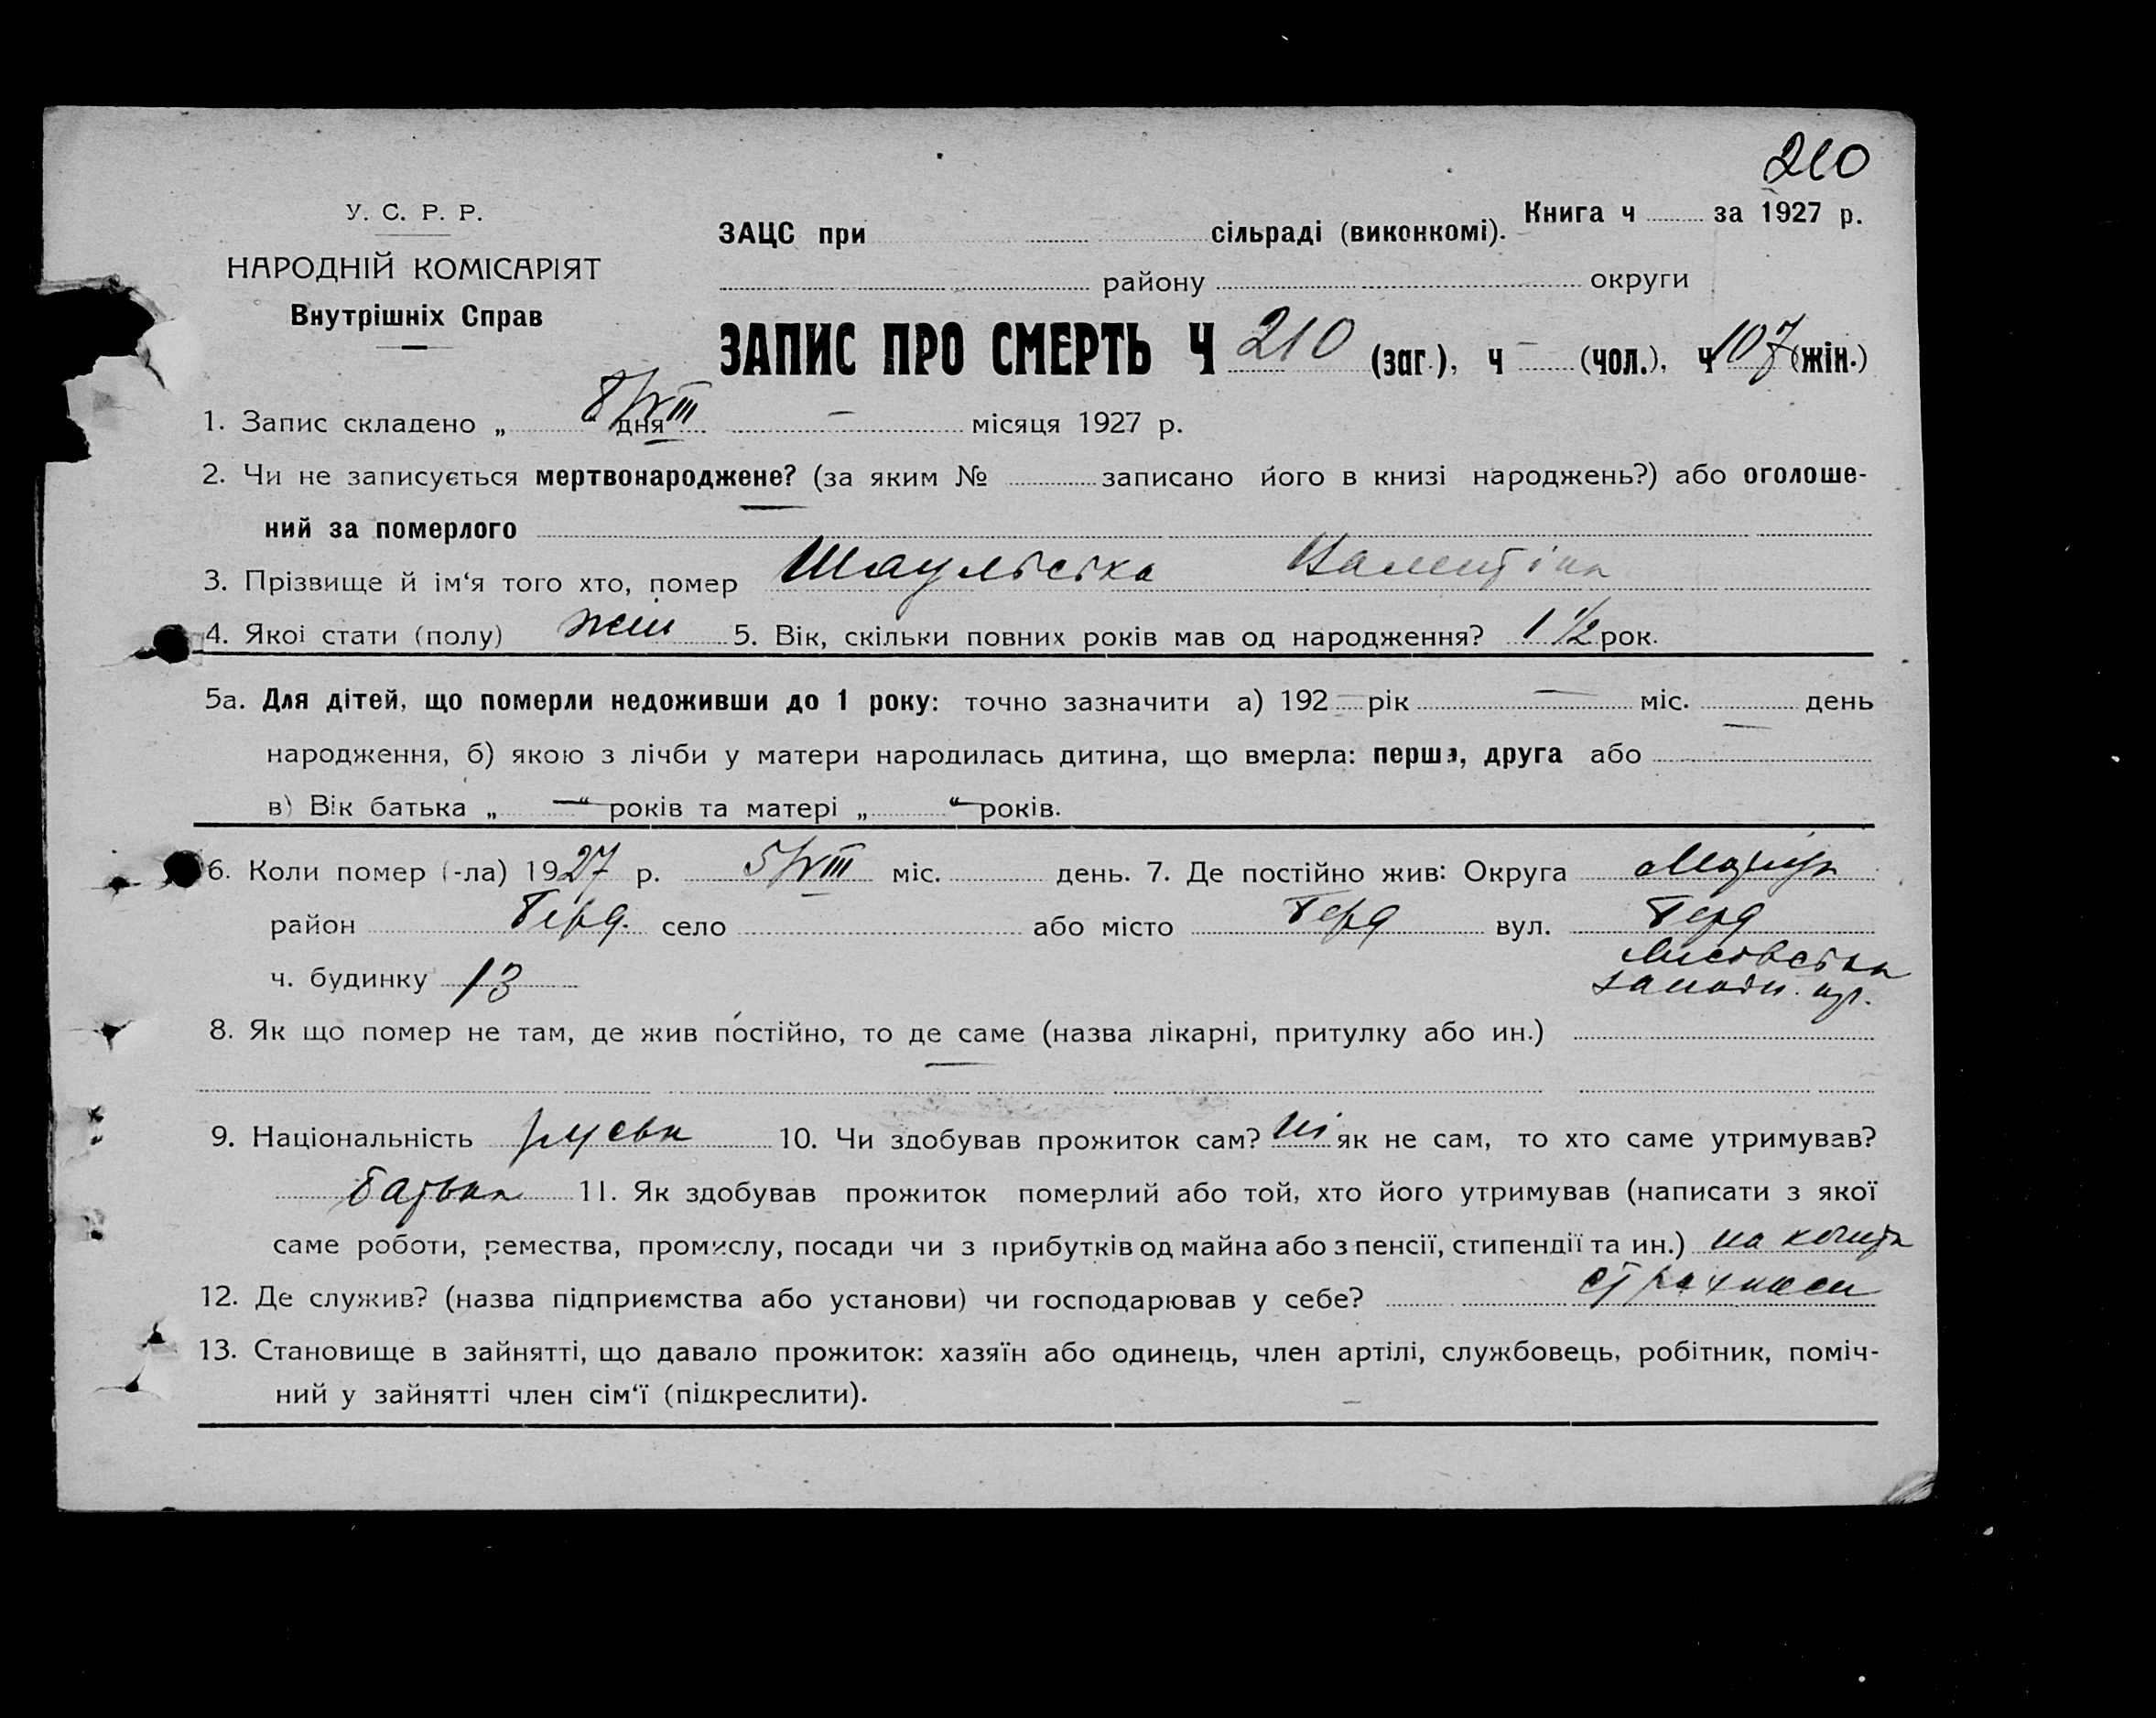 210
У. С. Р. Р.
НАРОДНІЙ КОМІСАРІЯТ
Внутрішніх Справ
Книга ч за 1927 р.
ЗАЦС при сільраді (виконкомі).
району округи
ЗАПИС ПРО СМЕРТЬ Ч 210 (заг.), ч — (чол.), ч 107 (жін.)
1. Запис складено „ 8/VIII “ дня — місяця 1927 р.
2. Чи не записується мертвонароджене? (за яким № записано його в книзі народжень?) або оголоше-
ний за померлого
3. Прізвище й ім‘я того хто, помер Шаульська Валентіна
4. Якої стати (полу) жін 5. Вік, скільки повних років мав од народження? 1 1/2 рок.
5а. Для дітей, що померли недоживши до 1 року: точно зазначити а) 192 — рік — міс. — день
народження, б) якою з лічби у матери народилась дитина, що вмерла: перша, друга або
в) Вік батька „ — “ років та матері „ — “ років.
6. Коли помер (-ла) 1927 р. 5/VIII міс. день. 7. Де постійно жив: Округа
район Берд. село або місто Берд вул. Берд
Лисовська
ч. будинку 13
8. Як що помер не там, де жив постійно, то де саме (назва лікарні, притулку або ин.)
9. Національність руська 10. Чи здобував прожиток сам? Ні як не сам, то хто саме утримував?
батько 11. Як здобував прожиток померлий або той, хто його утримував (написати з якої
саме роботи, ремества, промислу, посади чи з прибутків од майна або з пенсії, стипендії та ин.) на кошти
страхкаси
12. Де служив? (назва підприємства або установи) чи господарював у себе?
13. Становище в зайнятті, що давало прожиток: хазяїн або одинець, член артілі, службовець, робітник, поміч-
ний у зайнятті член сім‘ї (підкреслити). —